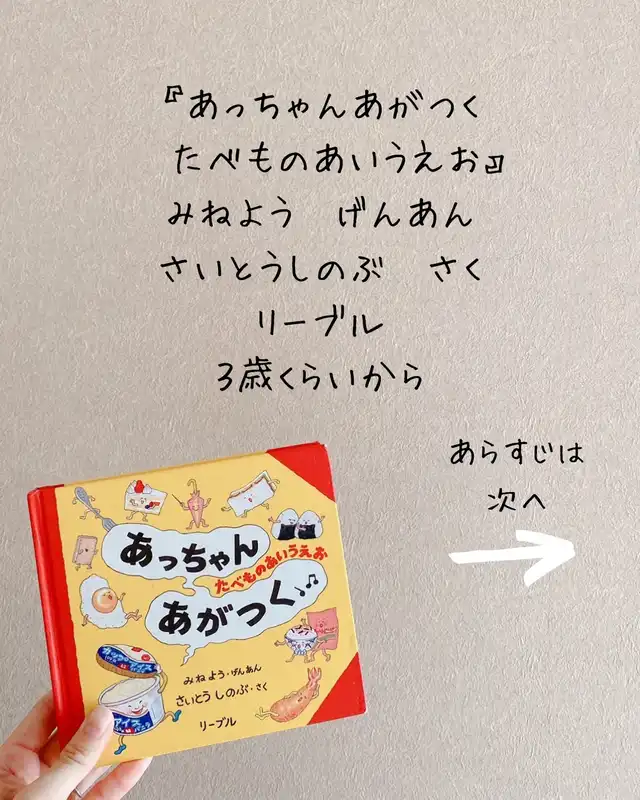 『あっちゃんあがつく
たべものあいうえお』
みねよう　げんあん
さいとうしのぶ　さく
リーブル
3歳くらいから
あらすじは
次へ
あっちゃん
たべものあいうえお
あがつく
みねよう・げんあん
さいとうしのぶ・さく
リーブル
カップアイス
アイス
バニラ